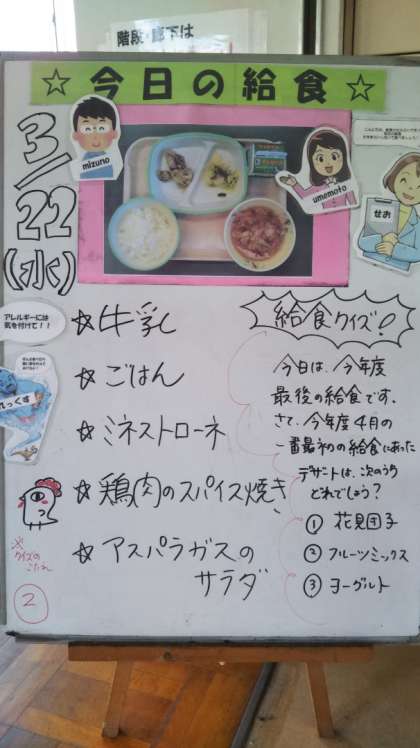 階段・廊下は
☆今日の給食☆
3/22
(水)
mizuno
umemoto
せお
アレルギーには
気を付けて!!
れっくす
☆牛乳
☆ごはん
☆ミネストローネ
☆鶏肉のスパイス焼き
☆アスパラガスの
サラダ
給食クイズ!
今日は、今年度
最後の給食です。
さて、今年度4月の
一番最初の給食にあった
デザートは、次のうち
どれでしょう?
① 花見団子
② フルーツミックス
③ ヨーグルト
※
クイズの
こたえ
②